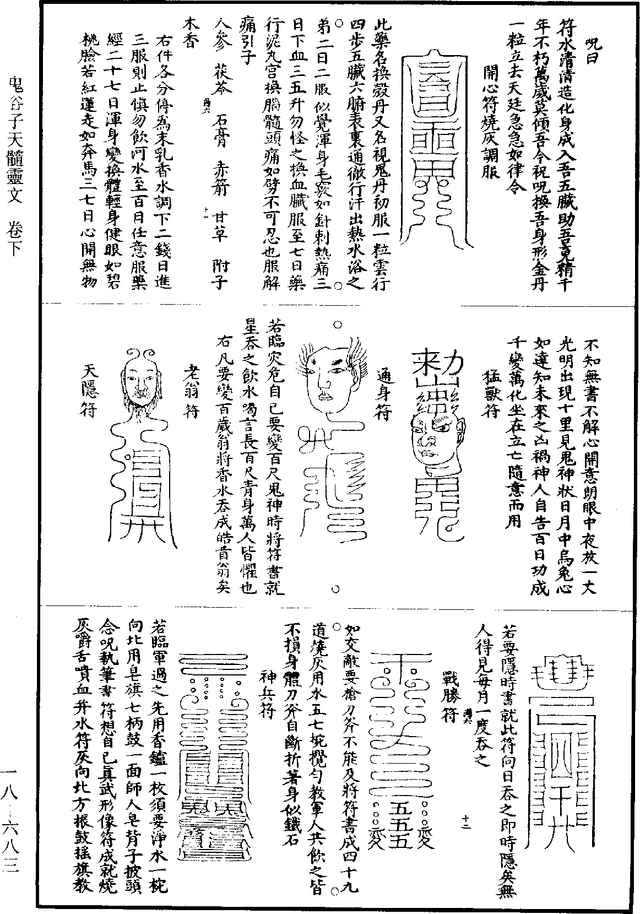 咒曰
符水清清造化身成入吾五臟助吾見精千
年不朽萬歲莫傾吾今祝呪換吾身形金丹
一粒立去天廷急急如律令
開心符燒灰調服
此藥名換骰丹又名視鬼丹初服一粒雲行
四步五臟六腑表裏通徹行汗出熱水浴之
弟二日二服似覺渾身毛竅如針刺熱痛三
日下血三五升勿怪之換血臟服至七日藥
行泥丸宮換腦髓頭痛如劈不可忍也服解
痛引子
人參 茯苓 石膏 赤箭 甘草 附子
木香
右件各分停為末乳香水調下二錢日進
三服則止慎勿飲河水至百日任意服藥
經二十七日渾身變換體輕身健眼如碧
桃臉若紅蓮走如奔馬三七日心開無物
不知無書不解心開意朗眼中夜放一丈
光明出現十里見鬼神狀日月中烏兔心
如達知未來之凶禍神人自告百日功成
千變萬化坐在立亡隨意而用
猛獸符
通身符
若臨灾危自己要變百尺鬼神時將符書就
星吞之飲水喝言長百尺青身萬人皆懼也
右凡要變百歲翁將香水吞成皓首翁矣
老翁符
天隱符
若要隱時書就此符向日吞之即時隱矣無
人得見每月一度吞之
戰勝符
十二
如交敵要槍刀斧不能及將符書成四十九
道燒灰用水五七椀攪勻教軍人共飲之皆
不損身體刀斧自斷折著身似鐵石
神兵符
若臨軍過之先用香鑪一枚須要淨水一椀
向北用皂旗七柄鼓一面師人皂背子披頭
念呪執筆書符想自已真武形像符成就燒
灰嚼舌噴血并水符灰向北方振鼓搖旗教
鬼谷子天髓靈文 卷下
一八-六八三